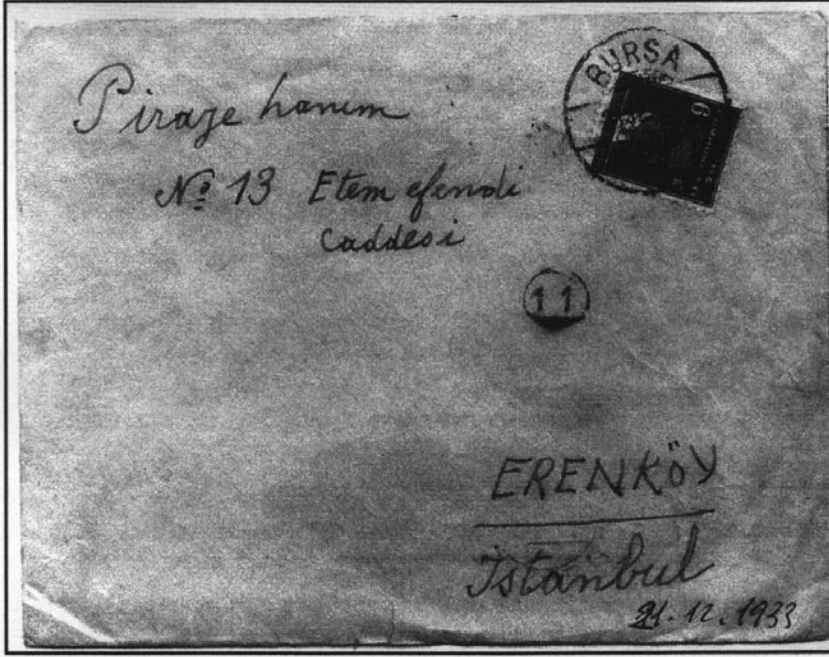 Piraye hanım
BURSA
6
№ 13 Etem efendi
Caddesi
11
ERENKÖY
İstanbul
21.12.1933